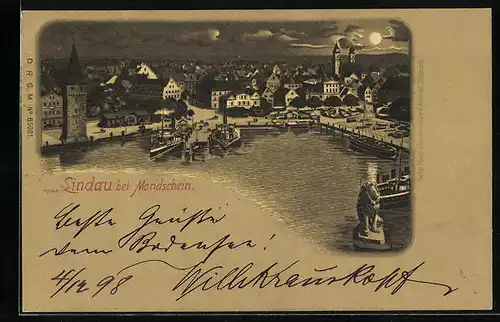 D. R. G. M. No 65081.
Lindau bei Mondschein.
Beste Grüße
vom Bodensee!
4/12 98 Willi Krauskopf